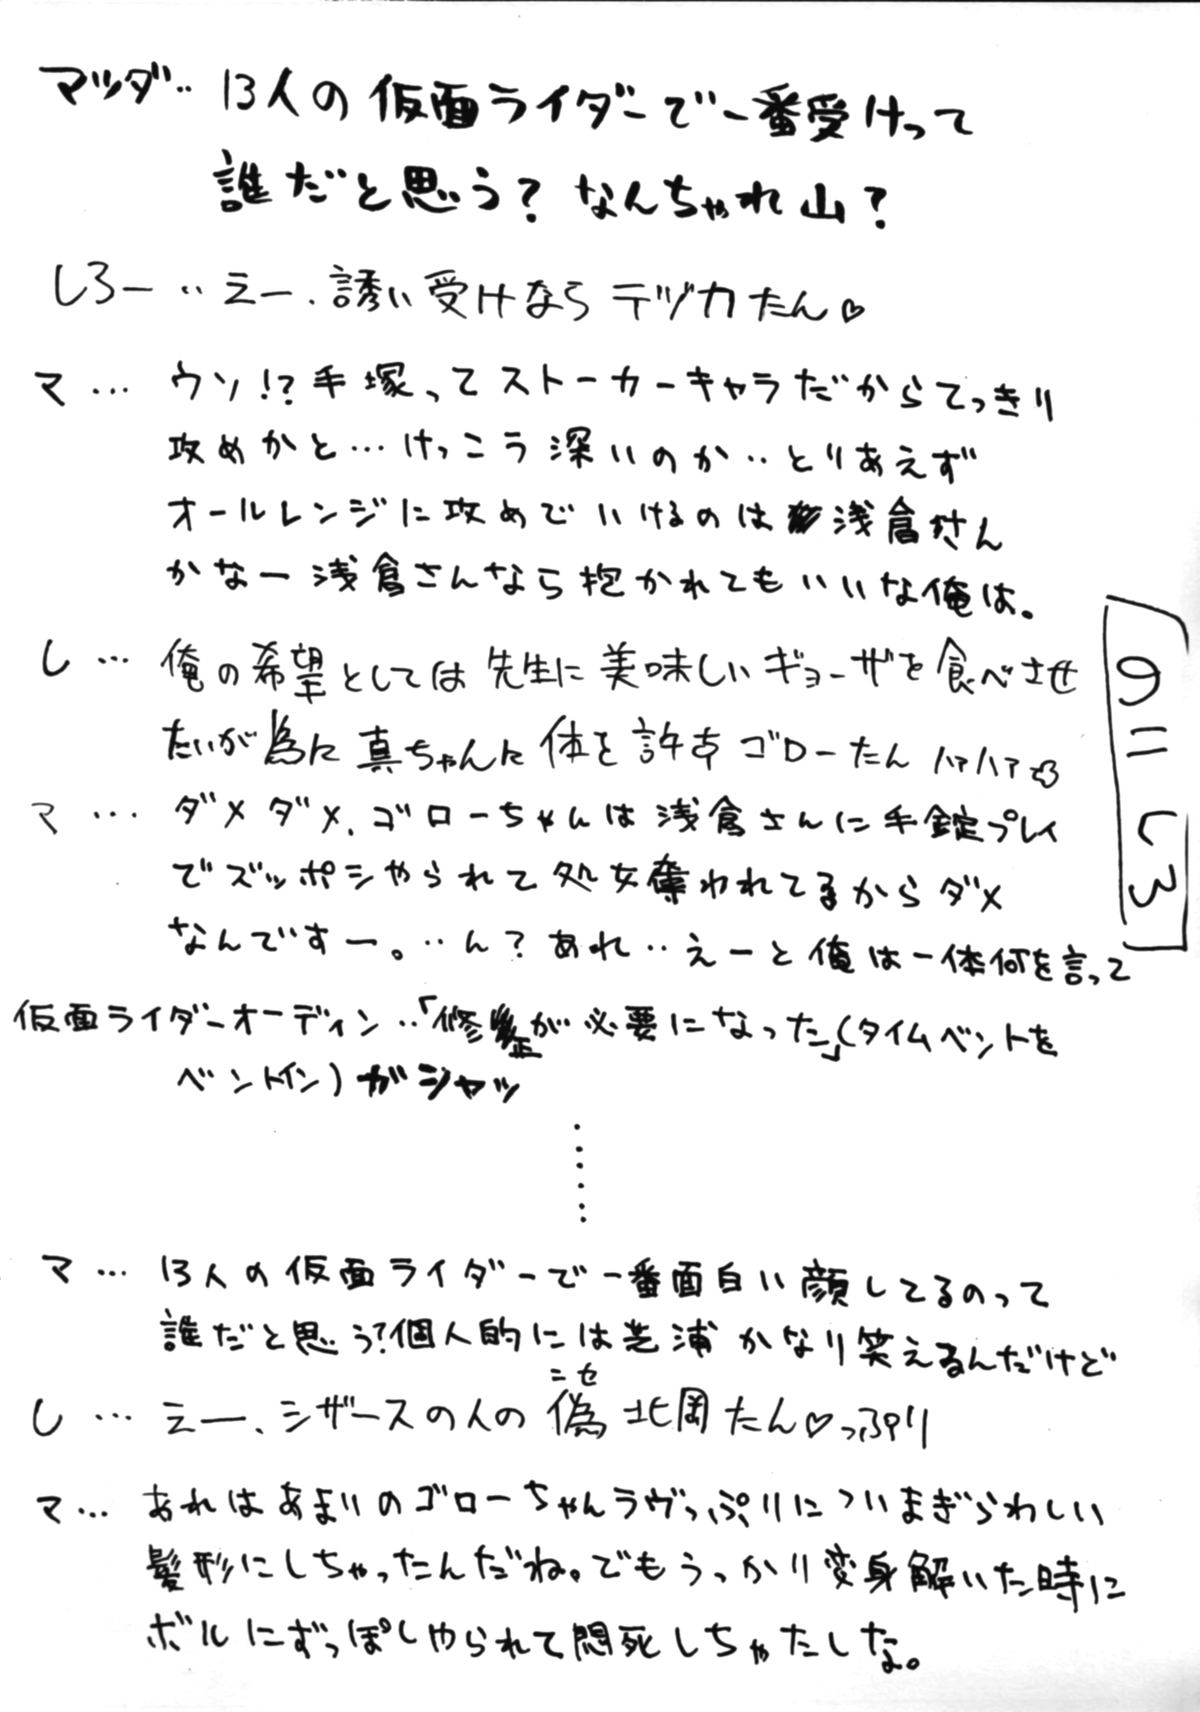 マツダ‥13人の仮面ライダーで一番受けって
誰だと思う?なんちゃれ山?
しろー‥えー、誘い受けならテヅカたん♡
マ…ウソ!?手塚ってストーカーキャラだからてっきり
攻めかと…けっこう深いのか‥とりあえず
オールレンジに攻めでいけるのは浅倉さん
かなー浅倉さんなら抱かれてもいいな俺は。
し…俺の希望としては先生に美味しいギョーザを食べさせ
たいが為に真ちゃんに体を許すゴローたんハァハァ
マ…ダメダメ、ゴローちゃんは浅倉さんに手錠プレイ
でズッポシやられて処女奪われてるからダメ
なんですー。‥ん?あれ‥えーと俺は一体何を言って
仮面ライダーオーディン‥「修正が必要になった」(タイムベントを
ベントイン)ガシャッ
……
マ…13人の仮面ライダーで一番面白い顔してるのって
誰だと思う?個人的には芝浦かなり笑えるんだけど
し…えー、シザースの人の偽北岡たん♡っぷり
ニセ
マ…あれはあまりのゴローちゃんラヴっぷりについまぎらわしい
髪形にしちゃったんだね。でもうっかり変身解いた時に
ボルにずっぽしやられて悶死しちゃたしな。
のりしろ